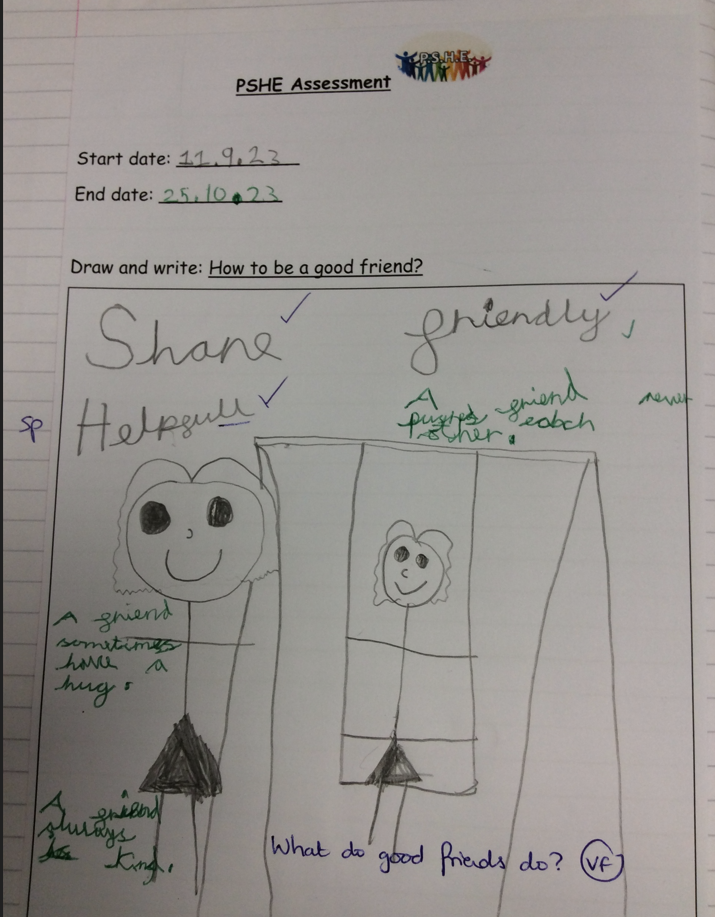 P.S.H.E.
PSHE Assessment
Start date: 11.9.23
End date: 25.10.23
Draw and write: How to be a good friend?
Share
friendly
sp
Helpfull
A friend never
pushes each
other.
A friend
sometimes
have a
hug.
A friend
always
is kind.
What do good friends do? VF